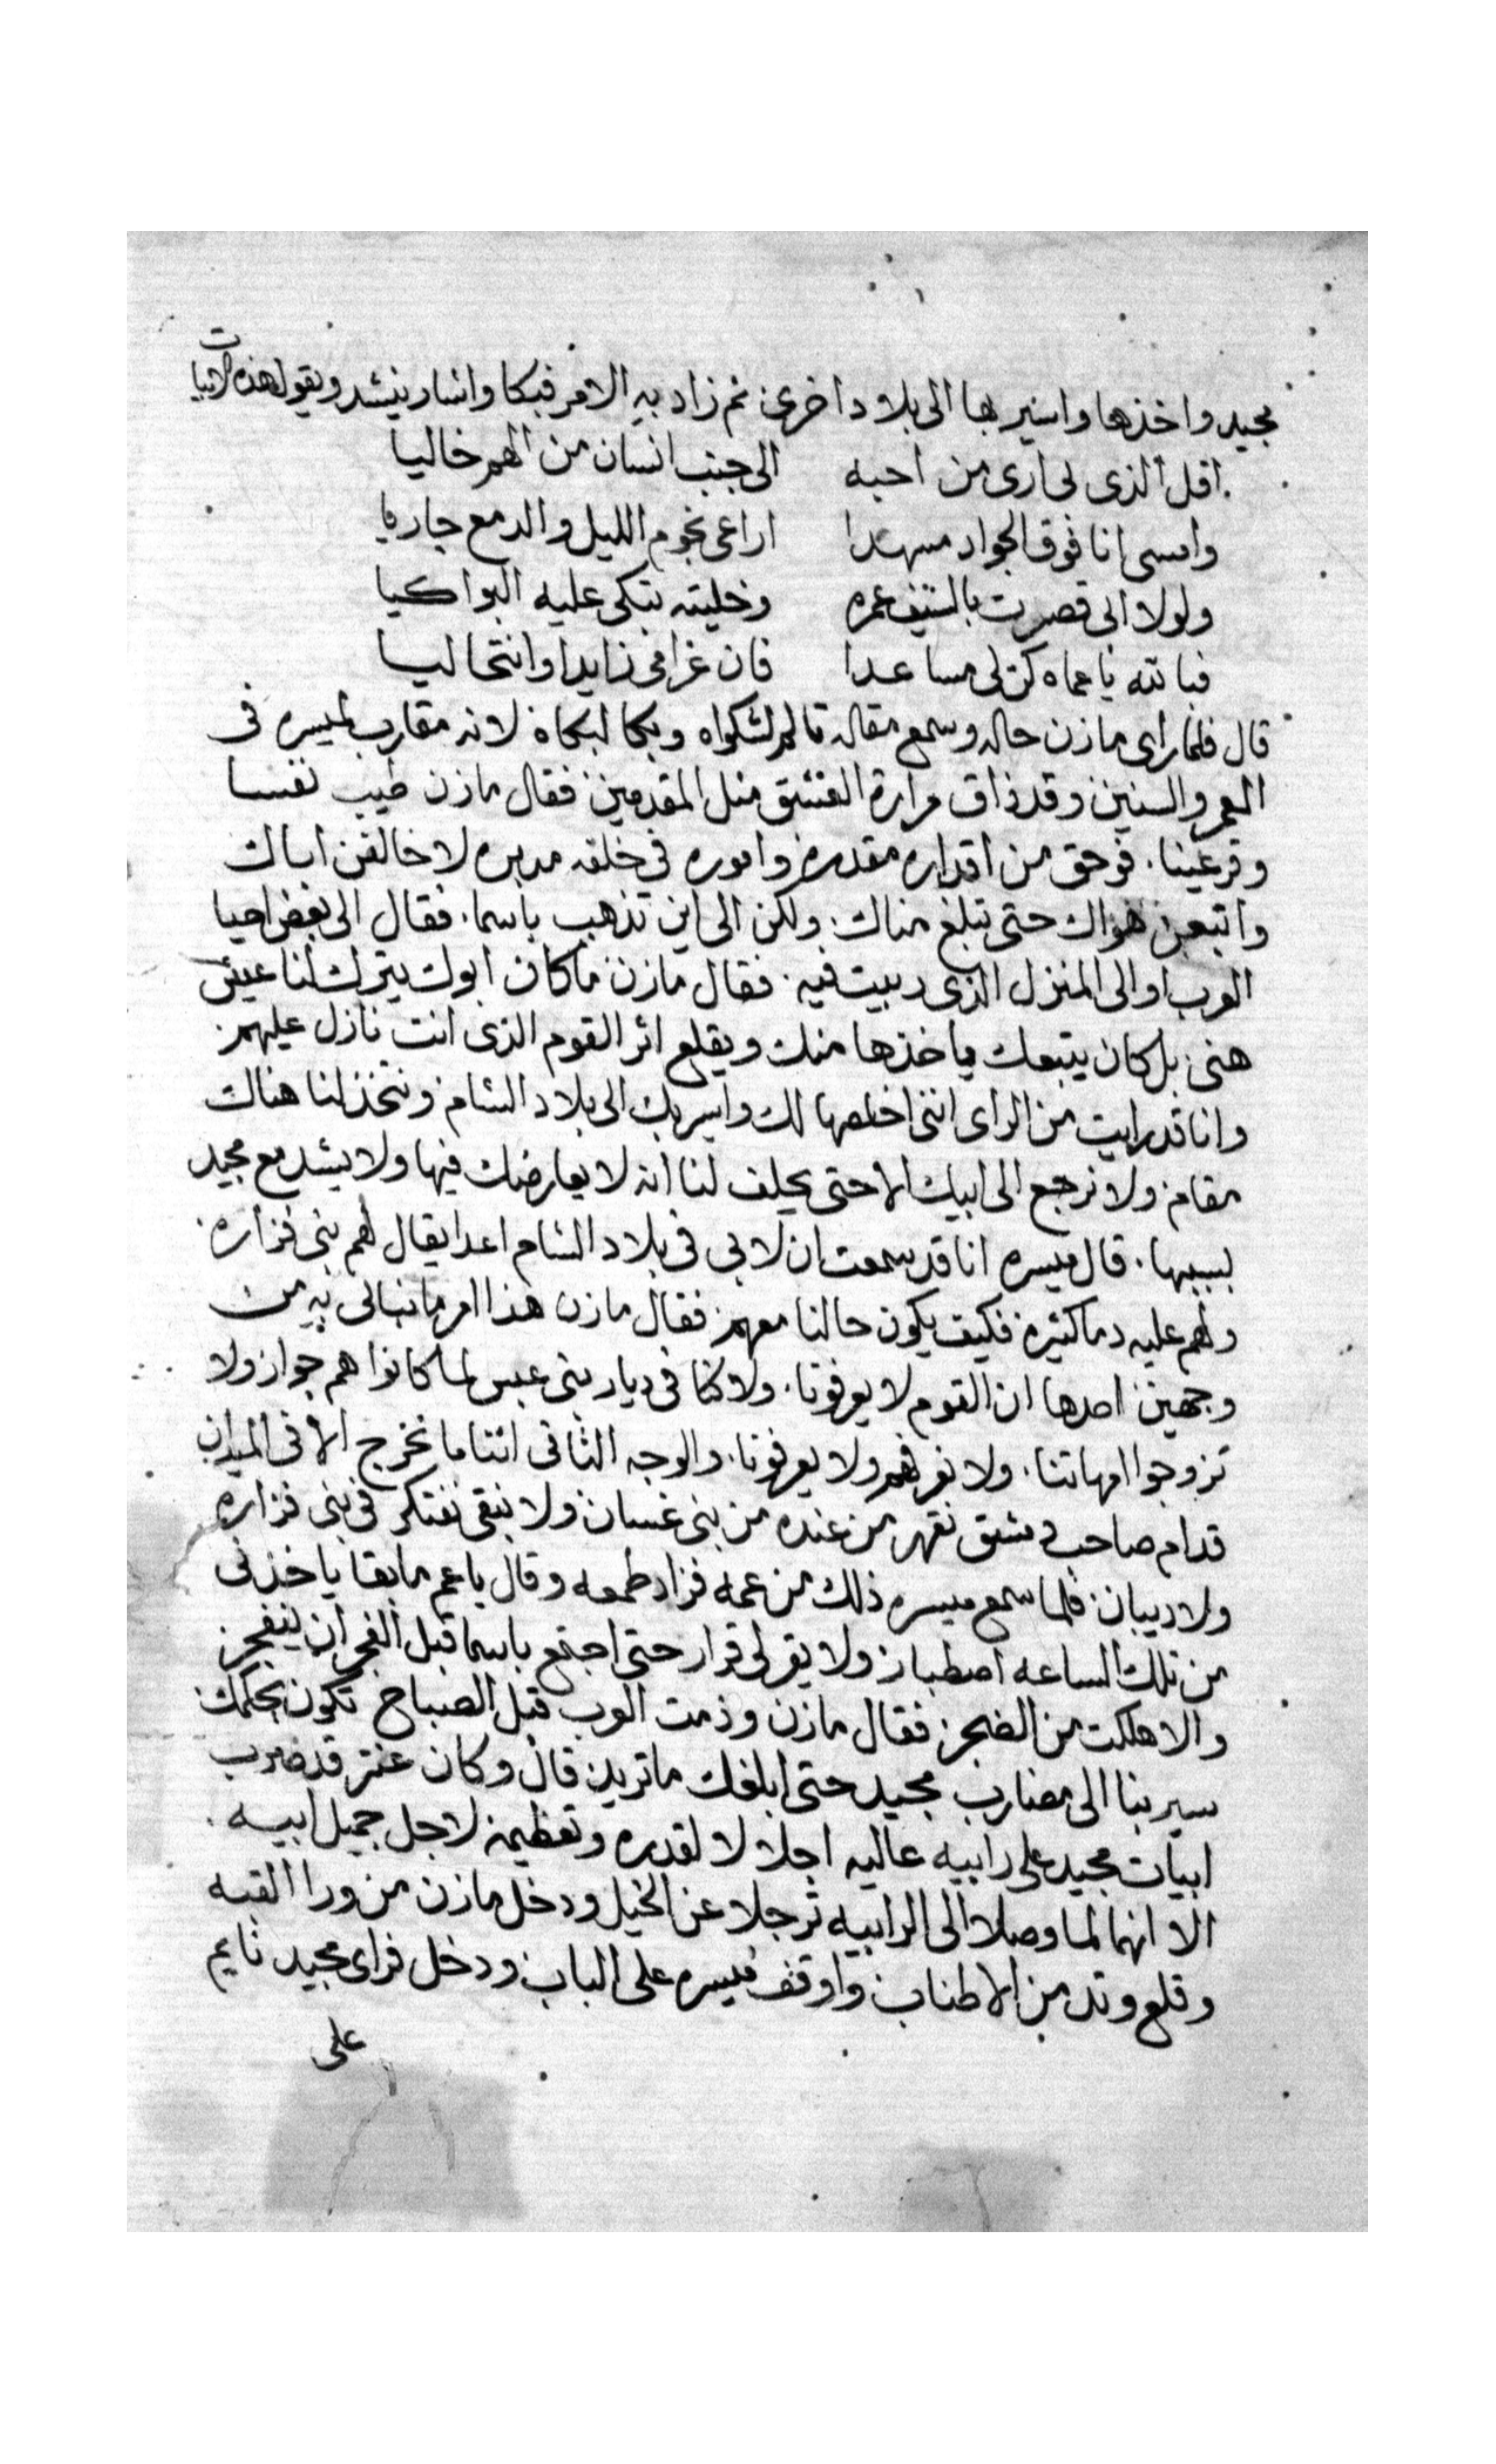 مجيد واخذها واسير بها الى بلاد اخرى ثم زاد به الامر فبكا واشار ينشد ويقول هذه الابيات
اقل الذى لى ارى من احبه الى جنب انسان من الهم خاليا
وامسى انا فوق الجواد مسهدا اراعى نجوم الليل والدمع جاريا
ولولا ابى قصرت بالسيف عمره وخليته تبكى عليه البواكيا
فبالله يا عماه كن لى مساعدا فان غرامى زايدا وانتحاليا
قال فلما راى مازن حاله وسمع مقاله تالم لشكواه وبكا لبكاه لانه مقارب لميسره فى
العمر والسنين وقد ذاق مرارة العشق مثل المقدمين فقال مازن طيب نفسا
وقر عينا. فوحق من اقداره مقدره واموره فى خلقه مدبره لا خالفن اباك
واتبعن هواك حتى تبلغ مناك. ولكن الى اين تذهب باسما. فقال الى بعض احيا
العرب او الى المنزل الذى ربيت فيه. فقال مازن ما كان ابوك يترك لنا عيش
هنى بل كان يتبعك ياخذها منك ويقلع اثر القوم الذى انت نازل عليهم
وانا قد رايت من الراى اننى اخلصها لك واسير بك الى بلاد الشام ونتخذ لنا هناك
مقام ولا نرجع الى ابيك الا حتى يحلف لنا انه لا يعارضك فيها ولا يشد مع مجيد
بسببها. قال ميسره انا قد سمعت ان لابى فى بلاد الشام اعدا يقال لهم بنى فزاره
ولهم عليه دما كثيره فكيف يكون حالنا معهم فقال مازن هذا امر ما نبالى به من
وجهين احدها ان القوم لا يعرفونا. ولا كنا فى ديار بنى عبس لما كانوا هم جوار ولا
تزوجوا امهاتنا. ولا نعرفهم ولا يعرفونا. والوجه الثانى اننا ما نخرج الا فى الميدان
قدام صاحب دمشق نقهر من عنده من بنى غسان ولا نبقى نفتكر فى بنى فزاره
ولا ديبان فلما سمع ميسره ذلك من عمه فزاد طمعه وقال يا عم ما بقا ياخذنى
من تلك الساعه اصطبار ولا يقر لى قرار حتى اجتمع باسما قبل الفجر ان ينفجر
والا هلكت من الضجر فقال مازن وذمت العرب قبل الصباح تكون بحكمك
سير بنا الى مضارب مجيد حتى ابلغك ما تريد قال وكان عنتر قد ضرب
ابيات مجيد على رابيه عاليه اجلالا لقدره وتعظيمه لاجل جميل ابيه.
الا انهما لما وصلا الى الرابيه ترجلا عن الخيل ودخل مازن من ورا القبه
وقلع وتد من الاطناب واوقف ميسره على الباب ودخل فراى مجيد نايم
على